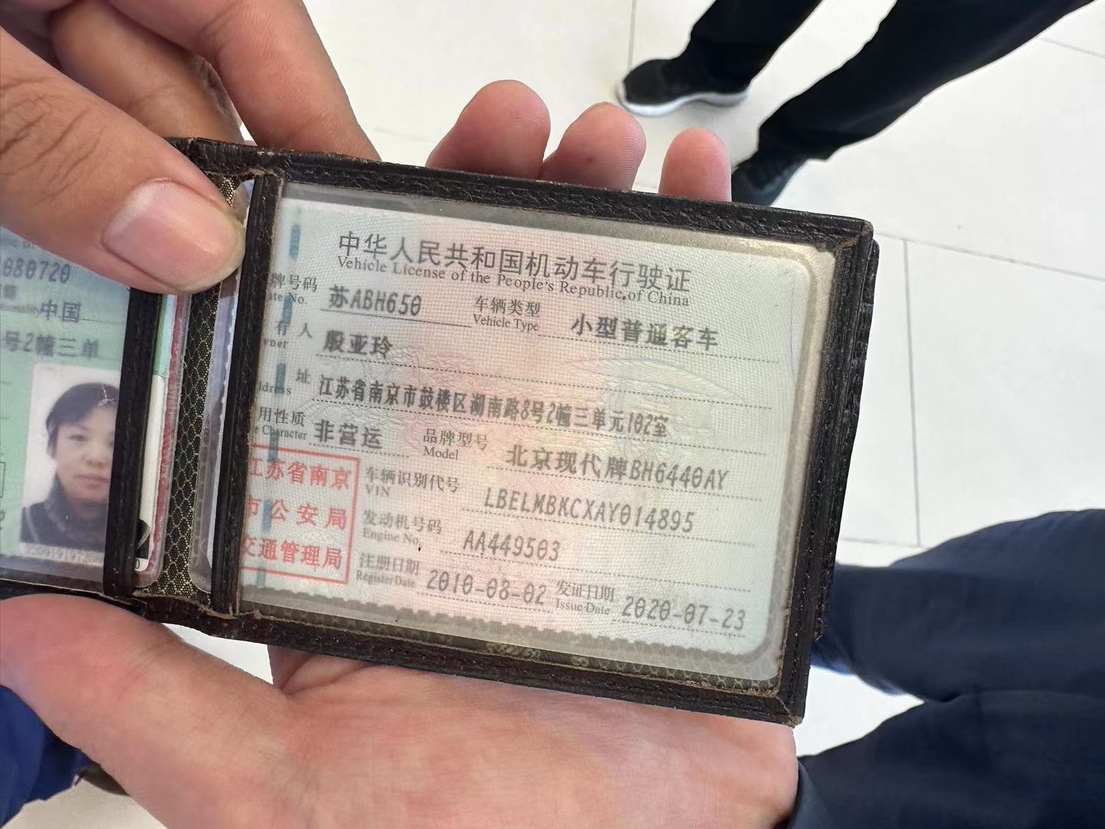 080720
中国
号2幢三单
中华人民共和国机动车行驶证
Vehicle License of the People's Republic of China
牌号码 苏ABH650 车辆类型 小型普通客车
ate No. Vehicle Type
有人 殷亚玲
wner
址 江苏省南京市鼓楼区湖南路8号2幢三单元102室
ddress
用性质 非营运 品牌型号 北京现代牌BH6440AY
e Character Model
江苏省南京
市公安局
交通管理局
车辆识别代号 LBELMBKCXAY014895
VIN
发动机号码 AA449503
Engine No.
注册日期 2010-08-02 发证日期 2020-07-23
Register Date Issue Date